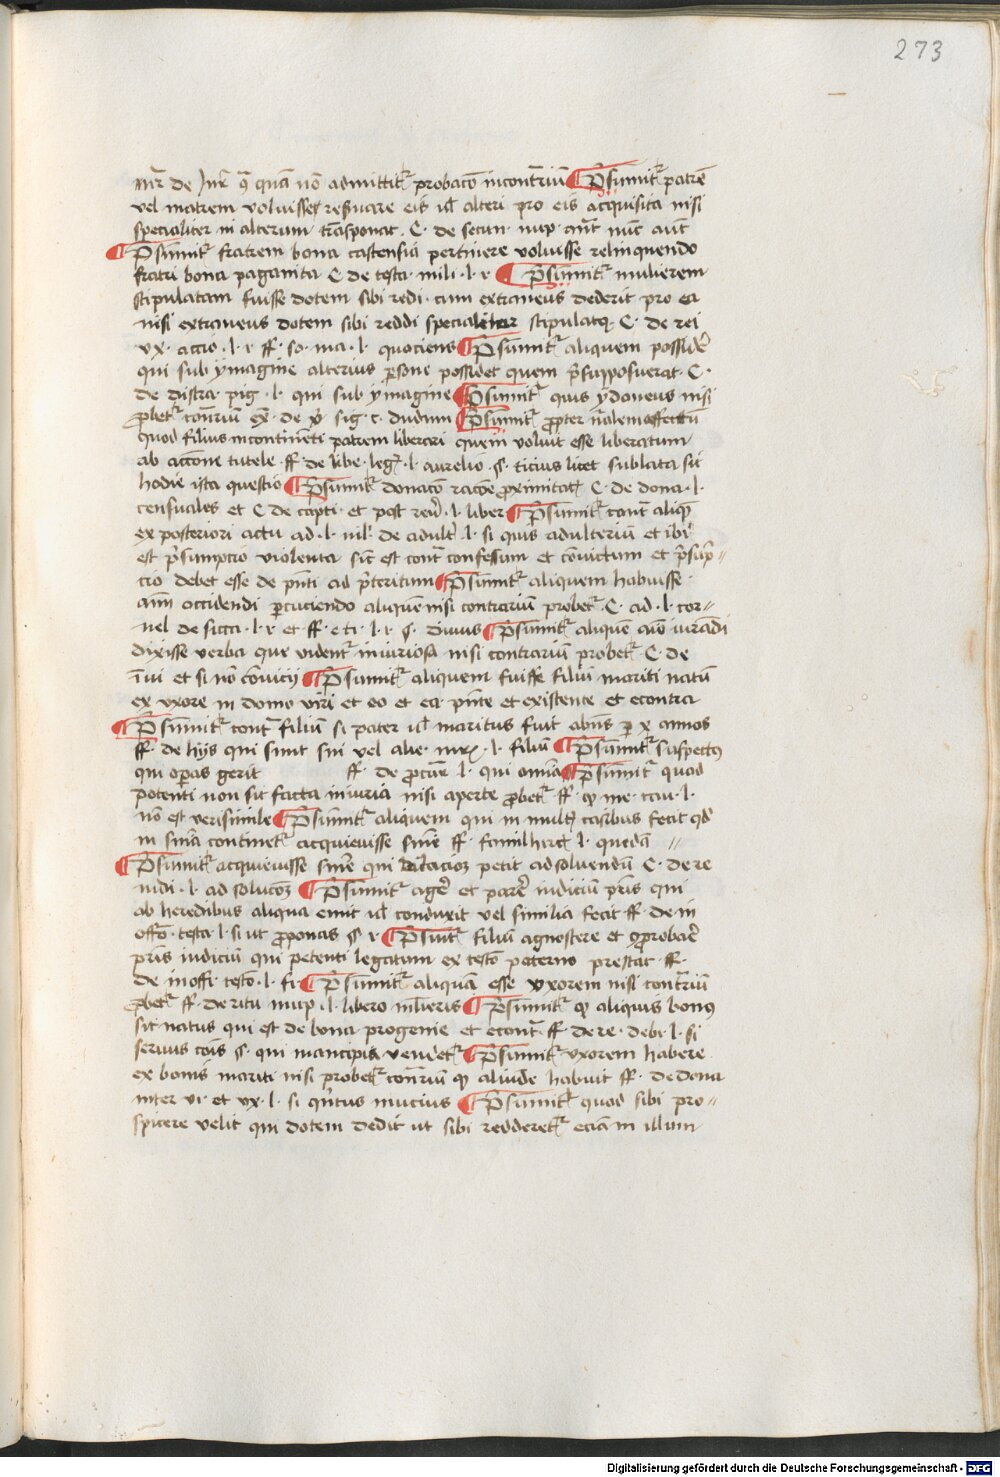 273
iur de iur qa quam non admittitur probacio incontrarium Presumitur patrem
vel matrem voluisse reservare eis vel alteri pro eis acquisita nisi
specialiter in alterum transponat · C · de secun · nup · aut nunc aut
Presumitur fratrem bona castrensia pertinere voluisse relinquendo
fratri bona paganita C de testa · mili · l · r Presumitur mulierem
stipulatam fuisse dotem sibi redi · cum extraneus dederit pro ea
nisi extraneus dotem sibi reddi specialiter stipulatus · C · de rei
vx · accio · l · r ff · so · ma · l · quociens Presumitur aliquem possidere
qui sub ymagine alterius persone possidet quem presupposuerat · C ·
de distra · pig · l · qui sub ymagine Presumitur quis ydoneus nisi
probetur contrarium ex · de · sig · c · dudum Presumitur propter naturalem affectum
quod filius incontinenti patrem liberari quem voluit esse liberatum
ab accione tutele ff · de libe · leg · l · aurelio § · ticius licet sublata sit
hodie ista questio Presumitur donacio racione proximitatis C · de dona · l ·
censuales et C de capti · et post · l · liber Presumitur contra aliquem
ex posteriori actu ad · l · iul · de adult · l · si quis adulterium et ibi
est presumpcio violenta sicut est contra confessum et convictum et presump=
cio debet esse de presenti ad preteritum Presumitur aliquem habuisse
animum occidendi percuciendo aliquem nisi contrarium probetur · C · ad · l · cor=
nel de sicca · l · r et ff · e ti · l · r § · divus Presumitur aliquem animo iniuriandi
dixisse verba que videntur iniuriosa nisi contrarium probetur C · de
iniu et si non convicii Presumitur aliquem fuisse filium mariti natum
ex vxore in domo viri et eo et ea presente et existente et econtra
Presumitur contra filium si pater vel maritus fuit absens per x annos
ff · de hijs qui sunt sui vel alie · iuris · l · filium Presumitur suspectus
qui operas gerit ff · de procur · l · qui omnia Presumitur quod
potenti non sit facta iniuria nisi aperte probetur ff · quod me · cau · l ·
non est verisimile Presumitur aliquem qui in multis casibus fecit quod
in sentencia continetur acquievisse sentencie ff · famil herc l · quedam
Presumitur acquievisse sentencie qui dilacionem petit ad solvendum C · de re
iudi · l · ad solucionem Presumitur agere et parere iudicium patris qui
ab heredibus aliqua emit vel conduxit vel similia fecit ff · de in
offo · testa l · si ut proponas § r · Presumitur filium agnoscere et comprobare
patris iudicium qui petenti legatum ex testo paterno prestat ff ·
de inoffi · testo · l · si · Presumitur aliquam esse vxorem nisi contrarium
probetur ff · de ritu nup · l · libero mulieris Presumitur quod aliquis bonus
sit natus qui est de bona progenie et econtra ff · de re · debi · l · si
servus cois § · qui mancipia vendetur Presumitur vxorem habere
ex bonis mariti nisi probetur contrarium quod aliunde habuit ff · de dona
inter vi · et vx · l · si quintus mucius Presumitur quod sibi pro=
spicere velit qui dotem dedit ut sibi redderetur eciam in illum
Digitalisierung gefördert durch die Deutsche Forschungsgemeinschaft - DFG